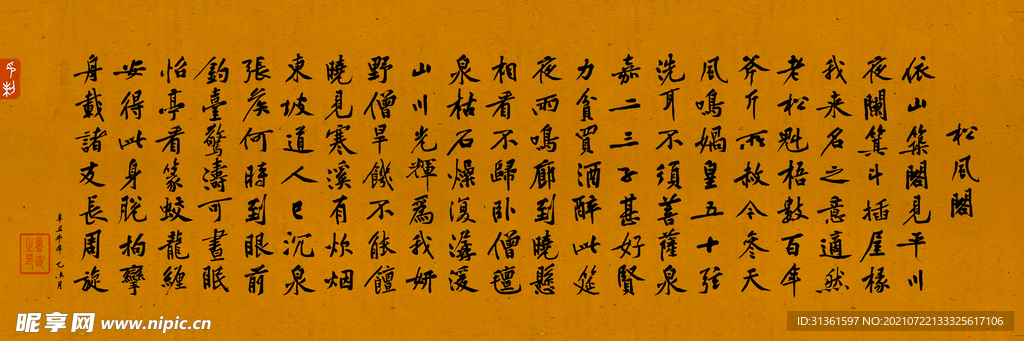 松風閣
依山築閣見平川
夜闌箕斗插屋椽
我来名之意適然
老松魁梧數百年
斧斤所赦今參天
風鳴媧皇五十弦
洗耳不須菩薩泉
嘉二三子甚好賢
力貧買酒醉此筵
夜雨鳴廊到曉懸
相看不歸卧僧氈
泉枯石燥復潺湲
山川光輝為我妍
野僧旱饑不能饘
曉見寒溪有炊烟
東坡道人已沉泉
張侯何時到眼前
釣臺驚濤可晝眠
怡亭看篆蛟龍纏
安得此身脫拘攣
舟載諸友長周旋
昵享网 www.nipic.cn
ID:31361597 NO:20210722133325617106